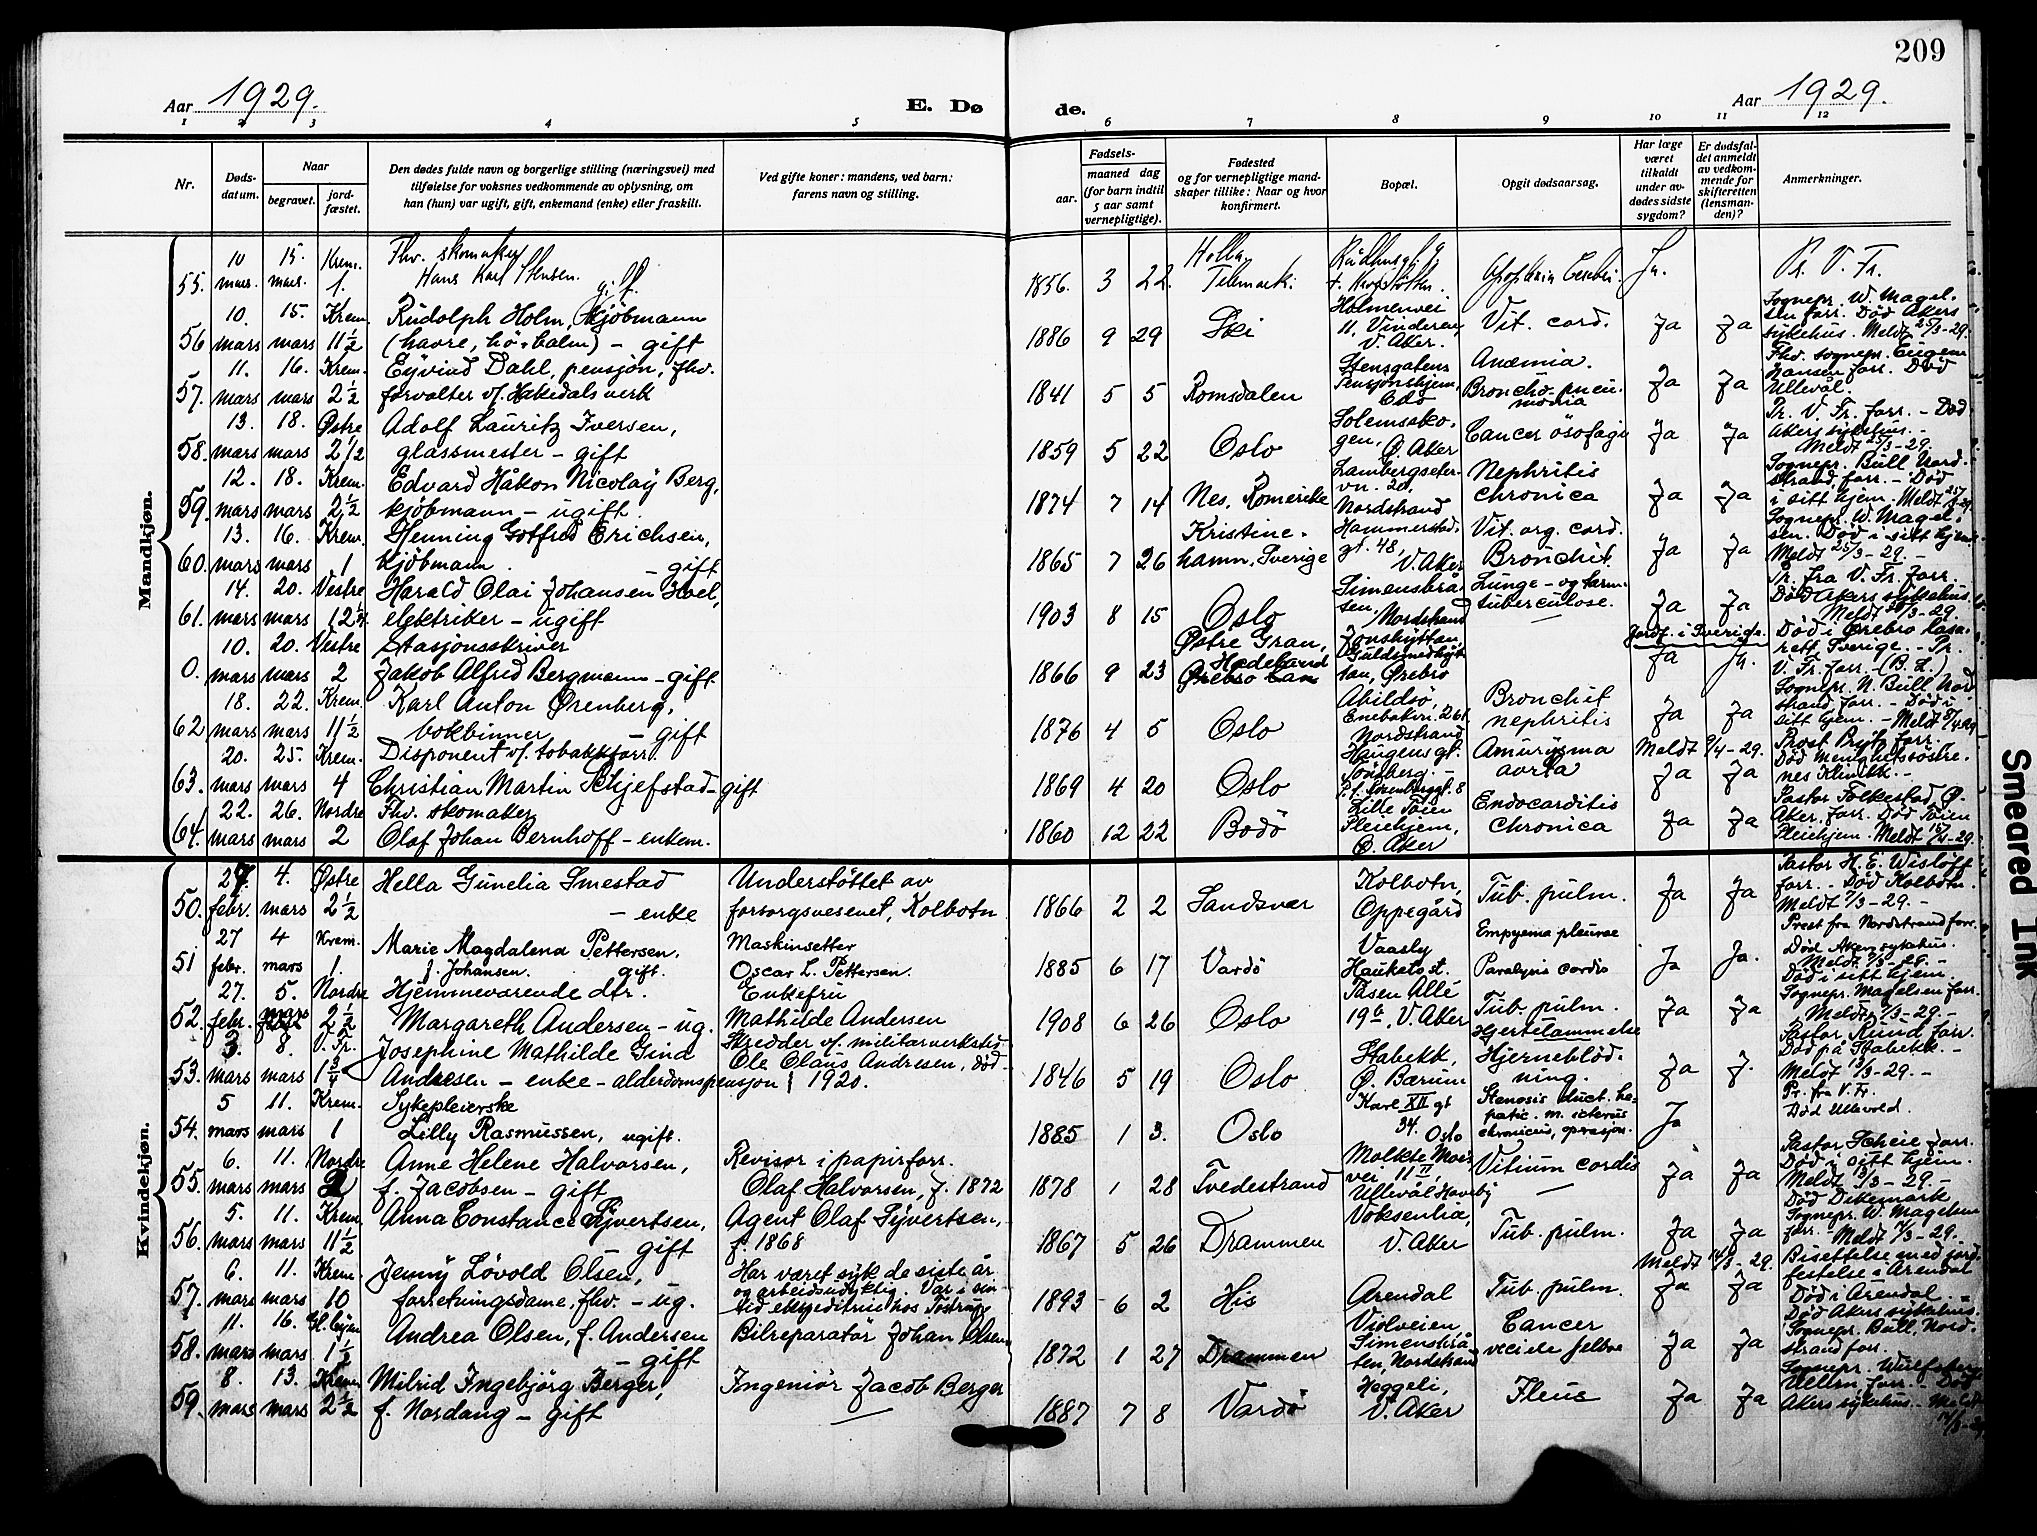 209
Aar 1929.
E. Dø
de.
Aar 1929.
1 2 3 4 5 6 7 8 9 10 11 12
Nr.
Døds-
datum.
Naar
begravet.
jord-
fæstet.
Den dødes fulde navn og borgerlige stilling (næringsvei) med
tilføielse for voksnes vedkommende av oplysning, om
han (hun) var ugift, gift, enkemand (enke) eller fraskilt.
Ved gifte koner: mandens, ved barn:
farens navn og stilling.
Fødsels-
aar.
maaned dag
(for barn indtil
5 aar samt
vernepligtige).
Fødested
og for vernepligtige mand-
skaper tillike: Naar og hvor
konfirmert.
Bopæl.
Opgit dødsaarsag.
Har læge
været
tilkaldt
under av-
dødes sidste
sygdom?
Er dødsfal-
det anmeldt
av vedkom-
mende for
skifteretten
(lensman-
den)?
Anmerkninger.
Mandkjøn.
10 15. Krem. Fhv. skomaker Holla,
55. mars. mars. 1. Hans Karl Stensen. gift 1856. 3 22. Telemark. Apoplexia Cerebri. Ja. Pr. V. Fr.
10. 15. Krem. Rudolph Holm, kjøbmann Holmenvei Sognepr. W. Magel-
56 mars mars 11½ (havre, hö + halm) – gift 1886 9 29 Ski 11, Vinderen, V. Aker. Vit. cord. Ja Ja sen forr. Død Akers sykehus. Meldt 25/3-29.
11. 16. Krem. Eyvind Dahl, pensjon. fhv. Stensgatens Anæmia. Fhv. sognepr. Eugen
57. mars mars 2½ forvalter v/ Hakedals verk 1841 5 5 Romsdalen Pensjonshjem, Oslo Broncho-pneumonia Ja Ja Hansen forr. Død Ullevål.
13. 18. Østre Adolf Lauritz Iversen, Pr. V. Fr. forr. – Død
58. mars mars 2½ glassmester – gift 1859 5 22 Oslo Ø. Aker Cancer ösofagi Ja Ja Akers sykehus. – Meldt 25/3-29.
12. 18. Krem. Edvard Håkon Nicolay Berg, Nephritis Sognepr. Bull Nord-
59. mars mars 2½ kjøbmann – ugift. 1874 7 14 Nes, Romerike vn. 20, Nordstrand chronica Ja Ja strand, forr. – Død i sitt hjem. Meldt
13. 16. Krem. Henning Gotfred Erichsen, Kristine- Vit. org. cord. Sognepr. W. Magel-
60. mars mars 1 kjöbmann. – gift 1865 7 26 hamn, Sverige gt. 48, V. Aker Bronchit. Ja Ja sen. Død i sitt hjem. Meldt 25/3-29. –
14. 20. Vestre Harald Olai Johansen Hoel, Simensbrå- Lunge- og tarm- Pr. fra V. Fr. forr.
61. mars mars 12¼ elektriker – ugift 1903 8 15 Oslo ten, Nordstrand tuberculose. Ja Ja Død Akers sykehus. Meldt
10. 20. Vestre Stasjonsskriver Østre Gran, Jordf. i Sverige. Død i Ørebro lasa-
0. mars mars 2 Jakob Alfred Bergmann – gift 1866 9 23 Hedeland Ørebro Län Ørebro Ja Ja. rett, Sverige. – Pr. V. Fr. forr. – (B. L.)
18. 22. Krem. Karl Anton Ørenberg, Abildsö, Bronchit Sognepr. N. Bull Nord
62 mars mars 11½ bokbinner – gift 1876 4 5 Oslo Enebakvn. 261 Nordstrand nephritis Ja Ja strand forr. – Død i sitt hjem. – Meldt
20. 25. Krem. Disponent v/ tobakkforr. Haugens gt. Meldt 9/4-29. Prost Brytz forr.
63. mars mars 4 Christian Martin Schjefstad – gift 1869 4 20 Oslo aorta Ja Ja Død Menighetssöstre- nes klinikk. –
22. 26. Nordre Fhv. skomaker Lille Töien Endocarditis Pastor Folkestad Ø.
64. mars mars 2 Olaf Johan Bernhoff – enkem. 1860 12 22 Bodö Pleiehjem, Ø. Aker chronica Ja Ja Aker, forr. Død Töien Pleiehjem. Meldt
Kvindekjøn.
27. 4. Østre Hella Gunelia Smestad Understöttet av Kolbotn, Pastor H. E. Wislöff
50. febr. mars 2½ – enke forsorgsvesenet, Kolbotn 1866 2 2 Sandsvær Oppegård Tub. pulm. Ja Ja forr. – Død Kolbotn. Meldt 7/3-29. –
27 4 Krem. Marie Magdalena Pettersen, Maskinsetter Empyema pleurae Prest fra Nordstrand forr.
51 febr. mars 1. f. Johansen. gift. Oscar L. Pettersen. 1885 6 17 Vardö Hauketo st. Paralysis cordis Ja Ja. Død Aker sykehus. Meldt 7/3-29. –
27. 5. Nordre Hjemmeværende dtr. Enkefru Tåsen Allé Død i sitt hjem.
52. febr. mars 2½ Margareth Andersen – ug. Mathilde Andersen 1908 6 26 Oslo V. Aker Tub. pulm. Hjertelammelse Ja Ja Sognepr. Magelsen forr. Meldt 7/3-29. –
3. 8. V. Fr. Josephine Mathilde Gina Skredder v/ militærverksted Stabekk, Hjerneblöd- Pastor Rund forr.
53. mars mars 1¾ Andresen – enke – alderdomspensjon Ole Claus Andresen, död 1920. 1846 5 19 Oslo Ø. Bærum ning. Ja J. Død på Stabekk. – Meldt 13/3-29. –
5 11. Krem. Sykepleierske Karl XII gt Stenosis duct. he- Pr. fra V. Fr.
54. mars mars 1 Lilly Rasmussen, ugift. 1885 1 3. Oslo 34. Oslo patic. m. icterus chronicus, operasjon. Ja Død Ullevold.
6. 11. Nordre Anne Helene Halvorsen, Revisor i papirforr. Moltke Moes Vitium cordis Pastor Scheie forr.
55. mars mars 2 f. Jacobsen – gift Olaf Halvorsen, f. 1872 1878 1 28 Tvedestrand vei 11 II, Ullevål Haveby Ja Ja Død i sitt hjem. Meldt 13/3-29. –
5. 11. Krem. Anna Constance Syvertsen, Agent Olaf Syvertsen, Voksenlia, Død Dikemark
56. mars mars 11½ – gift f. 1868 1867 5 26 Drammen V. Aker Tub. pulm. Ja Ja Sognepr. W. Magelsen forr. – Meldt 7/3-29.
6. 11. Krem. Jenny Løvold Olsen, Har været syk de siste år Meldt 14/3-29. Bisettelse med jord-
57. mars mars 10 forretningsdame, fhv. – ug. og arbeidsudyktig. Var i sin tid ekspeditrise hos Tostrup 1893 6 2 His Arendal Tub. pulm. Ja Ja festelse i Arendal Död i Arendal. –
11. 16. Andrea Olsen, f. Andersen Bilreparatør Johan Olsen Violveien Cancer Død Akers sykehus.
58. mars mars 1½ – gift 1872 1 27 Drammen Simensbrå- ten, Nordstrand Ja Ja Sognepr. Bull, Nord- strand forr.
8. 13. Krem Milrid Ingebjörg Berger, Ingeniör Jacob Berger Heggeli, Ileus Sognepr. Wulfsberg
59. mars mars 2½ f. Nordang – gift 1887 7 8 Vardö V. Aker Ja Ja Ullern forr. – Död Akers sykehus. – Meldt 14/3-29
Smeared Ink